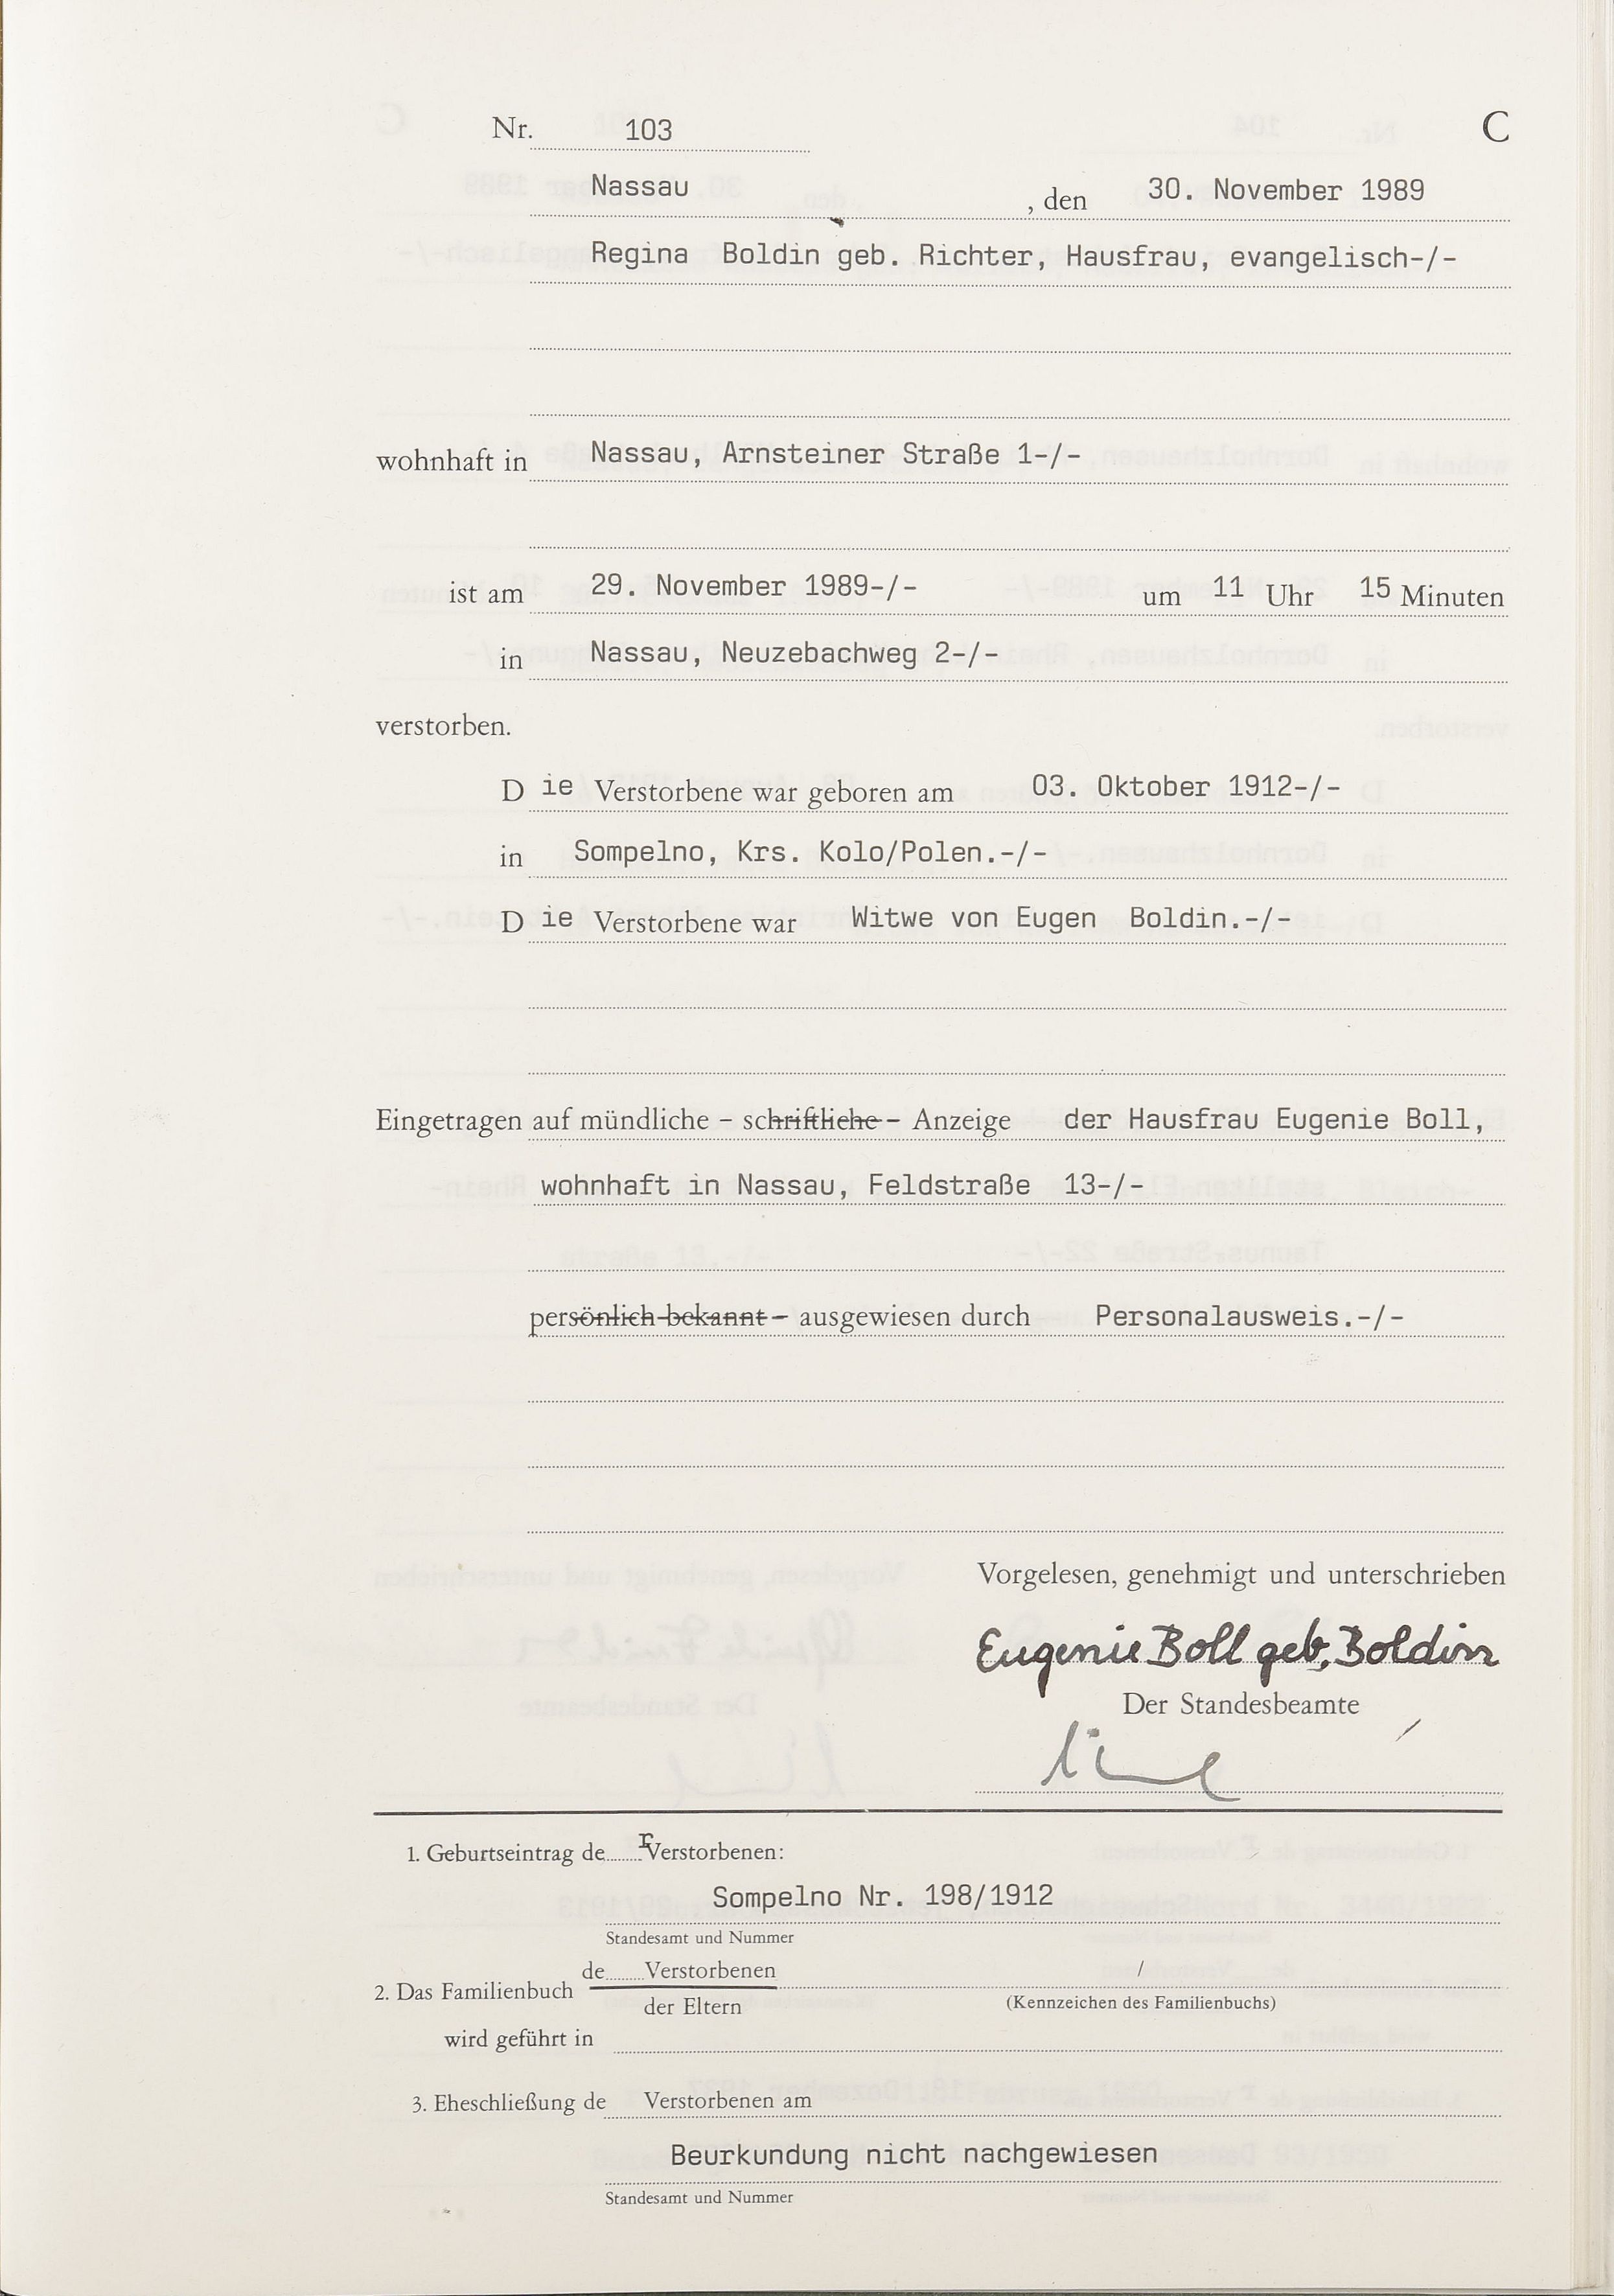 Nr. 103 C
Nassau , den 30. November 1989
Regina Boldin geb. Richter, Hausfrau, evangelisch-/-
wohnhaft in Nassau, Arnsteiner Straße 1-/-
ist am 29. November 1989-/- um 11 Uhr 15 Minuten
in Nassau, Neuzebachweg 2-/-
verstorben.
D ie Verstorbene war geboren am 03. Oktober 1912-/-
in Sompelno, Krs. Kolo/Polen.-/-
D ie Verstorbene war Witwe von Eugen Boldin.-/-
Eingetragen auf mündliche – schriftliche – Anzeige der Hausfrau Eugenie Boll,
wohnhaft in Nassau, Feldstraße 13-/-
persönlich bekannt – ausgewiesen durch Personalausweis.-/-
Vorgelesen, genehmigt und unterschrieben
Eugenie Boll geb. Boldin
Der Standesbeamte
1. Geburtseintrag de r Verstorbenen:
Sompelno Nr. 198/1912
Standesamt und Nummer
de Verstorbenen /
2. Das Familienbuch
der Eltern (Kennzeichen des Familienbuchs)
wird geführt in
3. Eheschließung de Verstorbenen am
Beurkundung nicht nachgewiesen
Standesamt und Nummer